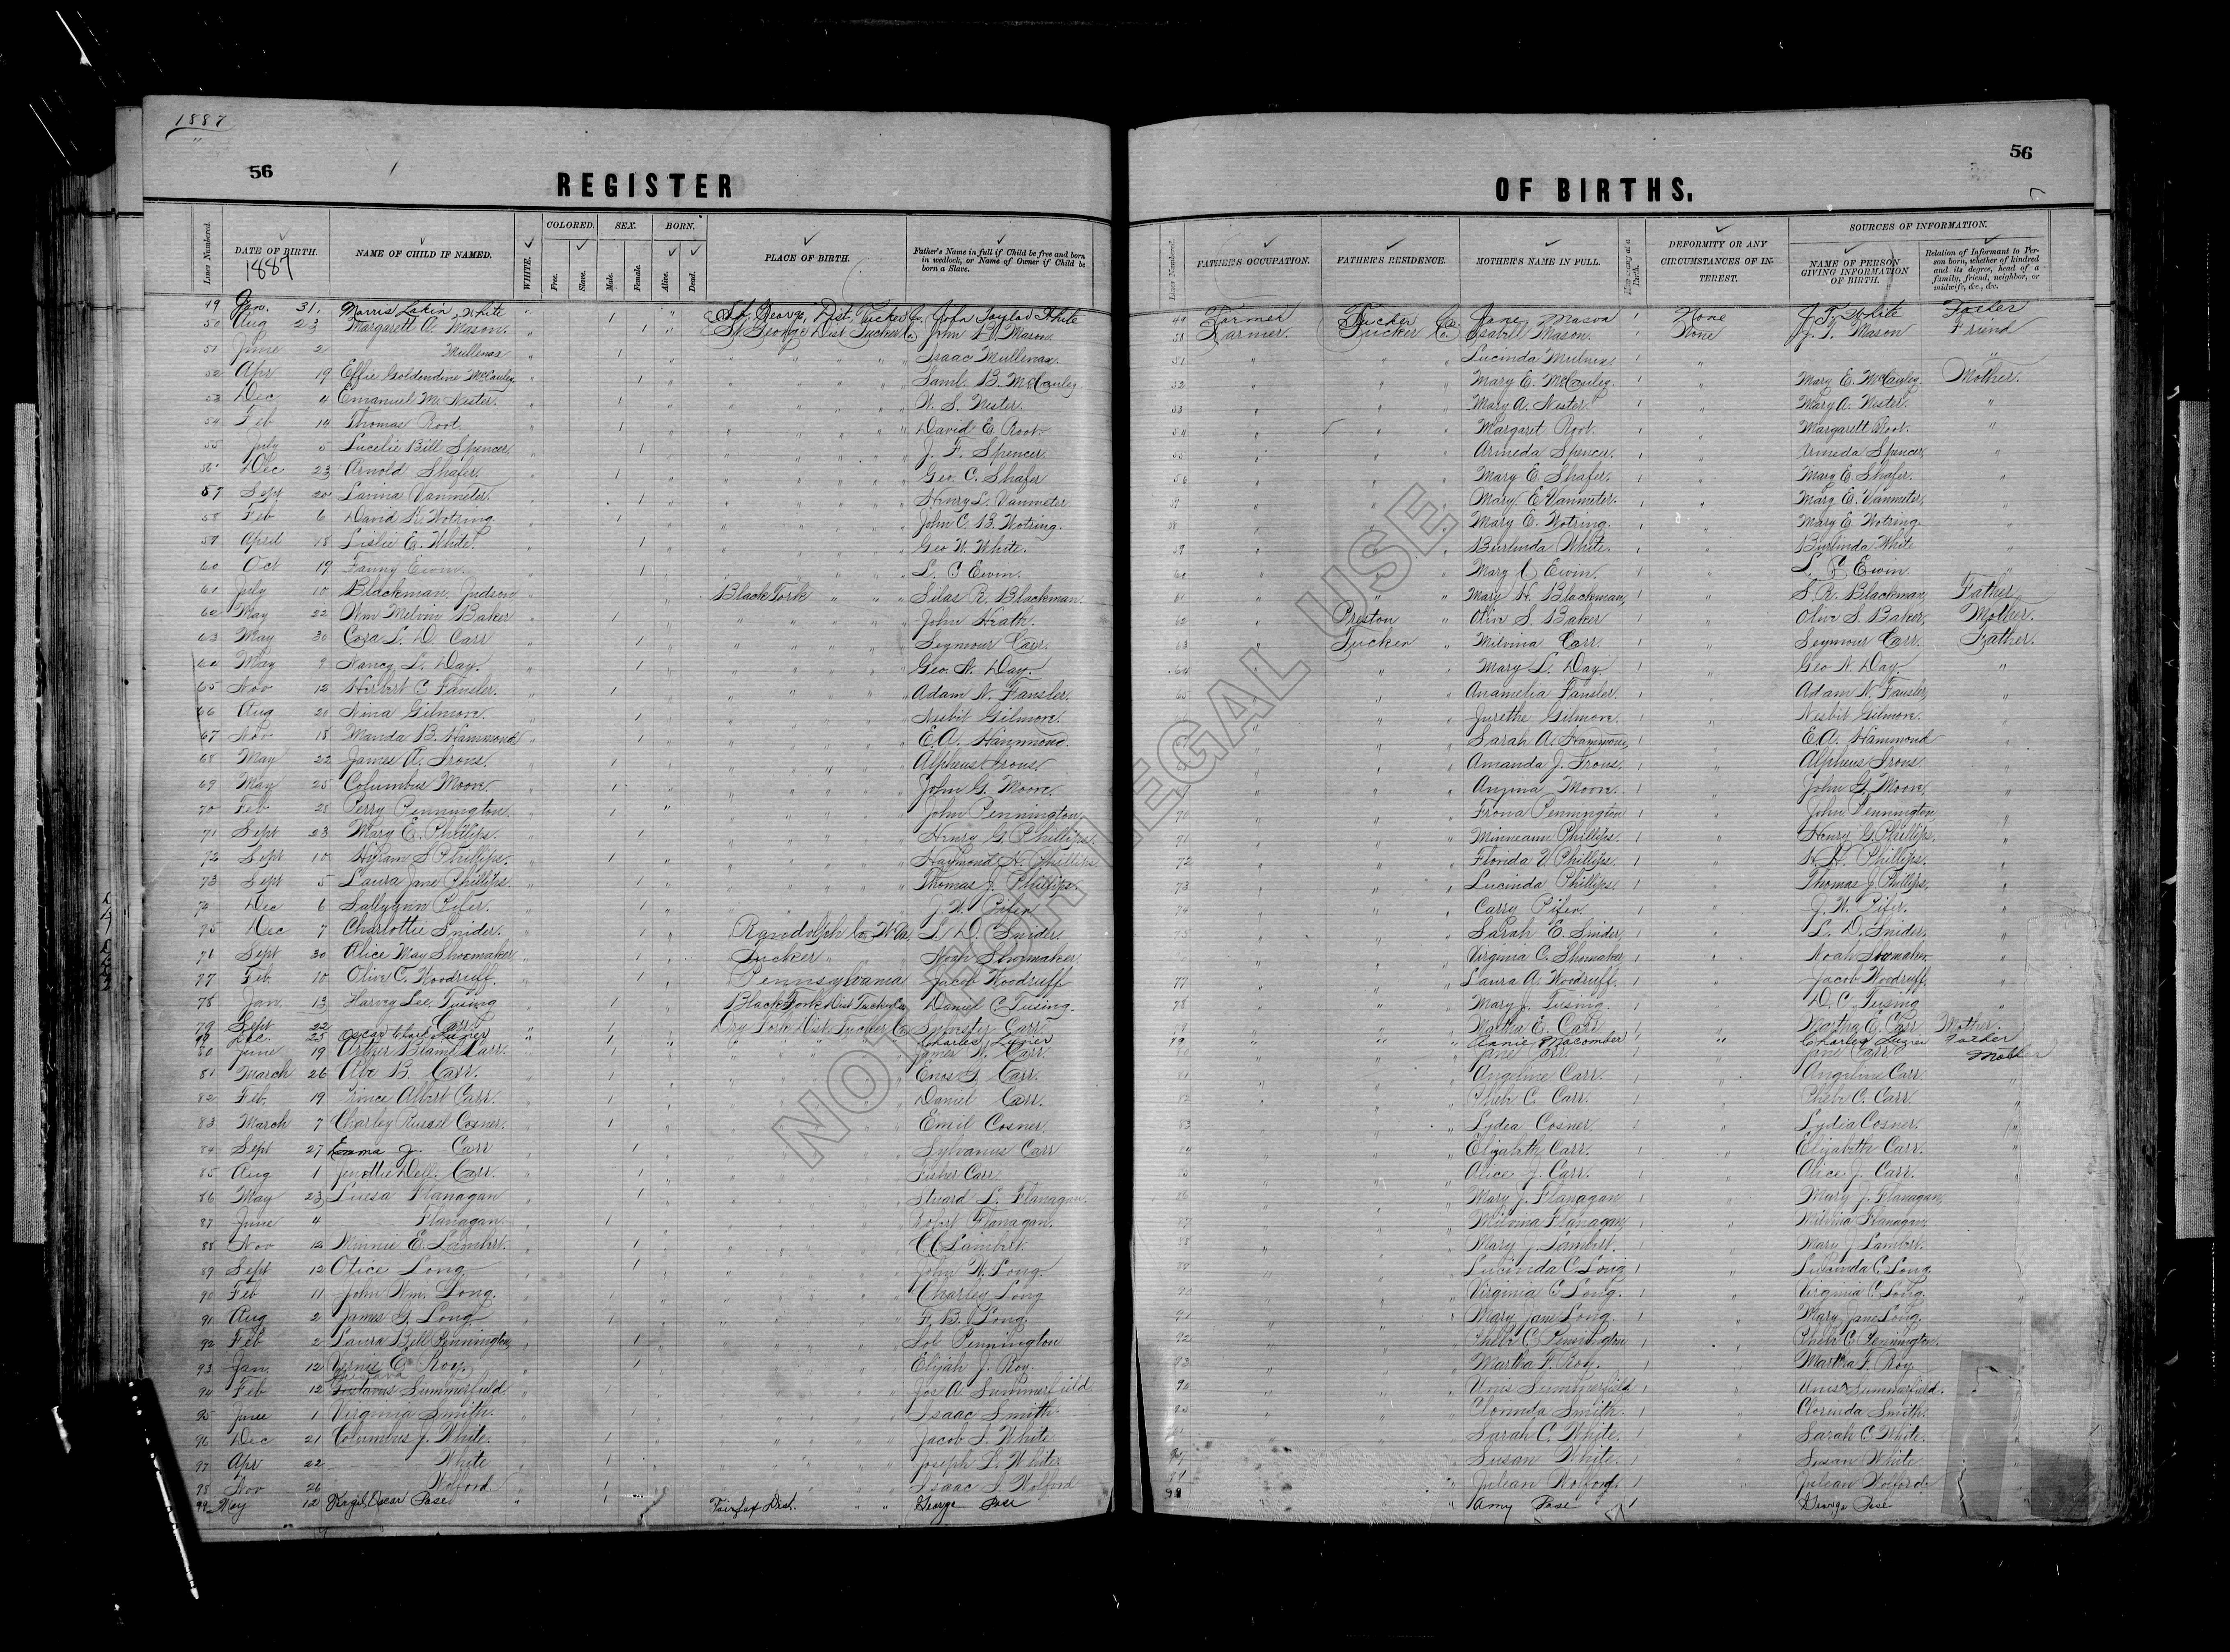 1887
"
56
REGISTER
OF BIRTHS.
56
Lines Numbered. DATE OF BIRTH. 1887 NAME OF CHILD IF NAMED. WHITE. COLORED. Free. Slave. SEX. Male. Female. BORN. Alive. Dead. PLACE OF BIRTH. Father's Name in full if Child be free and born in wedlock, or Name of Owner if Child be born a Slave.
Lines Numbered. FATHER'S OCCUPATION. FATHER'S RESIDENCE. MOTHER'S NAME IN FULL. DEFORMITY OR ANY CIRCUMSTANCES OF INTEREST. SOURCES OF INFORMATION. NAME OF PERSON GIVING INFORMATION OF BIRTH. Relation of Informant to Person born, whether of kindred and its degree, head of a family, friend, neighbor, or midwife, &c., &c.
49 Jan. 31. Morris Lakin White " 1 " St. George Dist Tucker Co. John Taylor White 49 Farmer Tucker Co. Jane Mason 1 None J. T. White Father
50 Aug 23 Margarett A. Mason. " 1 " St. George Dist. Tucker Co. John W. Mason. 50 Farmer. Tucker Co. Isabell Mason. 1 None J. T. Mason Friend
51 June 2 Mullenax " 1 " Isaac Mullenax. 51 Lucinda 1 "
52 Apr 19 Effie Goldendine McCauley " 1 " Saml. B. McCauley 52 Mary E. McCauley. 1 Mary E. McCauley. Mother.
53 Dec 4 Emanuel M. Nester. " 1 " W. S. Nester. 53 Mary A. Nester. 1 Mary A. Nester. "
54 Feb 14 Thomas Root. " 1 " David E. Root. 54 Margaret Root. 1 Margarett Root. "
55 July 5 Lucelie Bill Spencer. " 1 " J. F. Spencer. 55 Armeda Spencer. 1 Armeda Spencer "
56 Dec 23 Arnold Shafer. " 1 " Geo. C. Shafer 56 Mary E. Shafer. 1 Mary E. Shafer. "
57 Sept 20 Lavina Vanmeter. " 1 " Henry L. Vanmeter. 57 Mary E. Vanmeter. 1 Mary E. Vanmeter. "
58 Feb 6 David R. Wotring. " 1 " John C. B. Wotring. 58 Mary E. Wotring. 1 Mary E. Wotring. "
59 April 18 Leslie E. White. " 1 " Geo W. White. 59 Burlinda White. 1 Burlinda White "
60 Oct 19 Fanny Ewin. " 1 " L. C. Ewin. 60 Mary Ewin. 1 L. C. Ewin "
61 July 10 Blackman, Judson " Black Fork " " Silas R. Blackman. 61 " Mary H. Blackman 1 S. R. Blackman, Father.
62 May 22 Wm Melvin Baker " 1 " " " John Heath. 62 " Preston " Olive S. Baker 1 Olive S. Baker, Mother.
63 May 30 Cora L. D. Carr " 1 " Seymour Carr. 63 " Tucker " Melvina Carr. 1 Seymour Carr. Father.
64 May 9 Nancy L. Day. " 1 " Geo. N. Day. 64 Mary L. Day 1 Geo N. Day "
65 Nov 12 Herbert C. Fansler. " 1 " Adam N. Fansler. 65 Anamelia Fansler. 1 Adam N. Fansler, "
66 Aug 20 Nina Gilmore. " 1 " Nesbit Gilmore. Jurethe Gilmore. 1 Nesbit Gilmore. "
67 Nov 18 Manda B. Hammond " 1 " E. A. Hammond. 67 Sarah A. Hammond, 1 E. A. Hammond "
68 May 22 James A. Irons. " 1 " Alpheus Irons. Amanda J. Irons. 1 Alpheus Irons. "
69 May 25 Columbus Moon. " 1 " John G. Moon. Anjina Moon. 1 John G. Moon, "
70 Feb 28 Perry Pennington. " 1 " John Pennington, 70 Frona Pennington 1 John Pennington "
71 Sept 23 Mary E. Phillips. " 1 " Henry G. Phillips. 71 Minneann Phillips. 1 Henry G. Phillips, "
72 Sept 10 Hyram S. Phillips. " 1 " Haymond H. Phillips. 72 Florida V. Phillips. 1 H. H. Phillips. "
73 Sept 5 Laura Jane Phillips. " 1 " Thomas J. Phillips. 73 Lucinda Phillips. 1 Thomas J. Phillips, "
74 Dec 6 Sallyann Pifer. " 1 " J. W. Pifer 74 Carry Pifer. 1 J. W. Pifer. "
75 Dec 7 Charlottie Snider. " 1 " Randolph Co W Va. L. D. Snider. 75 Sarah E. Snider, 1 L. D. Snider, "
76 Sept 30 Alice May Shoemaker " 1 " Tucker " Noah Shoemaker. Virginia C. Shomaker 1 Noah Shoemaker "
77 Feb. 10 Olive C. Woodruff. " 1 " Pennsylvania Jacob Woodruff 77 Laura A. Woodruff. 1 Jacob Woodruff, "
78 Jan. 13 Harvey Lee Tusing " 1 " Black Fork Dist Tucker Co. Daniel C. Tusing. 78 Mary J. Tusing. 1 D. C. Tusing "
79 Sept 22 Carr. " 1 " Dry Fork Dist. Tucker Co Sylvester Carr 79 Martha E. Carr 1 Martha E. Carr Mother.
79 Dec. 25 Oscar Clark Luzier " 1 " Charles Luzier 79 Annie Macomber 1 " Charles Luzier Father
80 June 19 Arther Blame Carr. " 1 " James W. Carr. 80 Jane Carr. 1 Jane Carr Mother
81 March 26 Abe B. Carr. " 1 " Enos G. Carr. 81 Angeline Carr. 1 Angeline Carr. "
82 Feb. 19 Prince Albert Carr. " 1 " Daniel Carr. 82 Pheb C. Carr. 1 Pheb C. Carr "
83 March 7 Charley Russel Cosner. " 1 " Emil Cosner. 83 Lydea Cosner. 1 Lydia Cosner. "
84 Sept 27 Emma J. Carr " 1 " Sylvanus Carr 84 Elizabeth Carr. 1 Elizabeth Carr. "
85 Aug 1 Jenottie Dell. Carr. " 1 " Fisher Carr 85 Alice J. Carr. 1 Alice J. Carr. "
86 May 23 Luesa Flanagan " 1 " Stuard L. Flanagan. 86 Mary J. Flanagan 1 Mary J. Flanagan, "
87 June 4 Flanagan. " 1 " Robert Flanagan. 87 Milvina Flanagan 1 Milvina Flanagan
88 Nov 12 Minnie E. Lambert. " 1 " Lambert. 88 Mary J. Lambert. 1 Mary J. Lambert.
89 Sept 12 Otice Long " 1 " John W. Long. 89 Lucinda C. Long 1 Lucinda C. Long.
90 Feb 11 John Wm. Long. " 1 " Charley Long 90 Virginia C. Long. 1 Virginia C. Long.
91 Aug 2 James G. Long " 1 " F. B. Long. 91 Mary Jane Long. 1 Mary Jane Long.
92 Feb 2 Laura Bell Pennington, " 1 " Sol Pennington 92 Pheb C. Pennington 1 Pheb C. Pennington.
93 Jan. 12 Vernie C. Roy. " 1 " Elijah J. Roy. 93 Martha F. Roy. 1 Martha F. Roy
94 Feb 12 Summerfield " 1 " Jos A. Summerfield Unis Summerfield 1 Unis Summerfield.
95 June 1 Virginia Smith. " 1 " Isaac Smith. 95 Clorinda Smith. 1 Clorinda Smith.
96 Dec 21 Columbus J. White. " 1 " Jacob S. White. Sarah C. White. 1 Sarah C. White.
97 Apr 22 White " 1 " Joseph L. White 97 Susan White. 1 Susan White
98 Nov 26 Wolford. " 1 " Isaac S. Wolford Julian Wolford. 1 Julian Wolford.
99 May 12 Oscar Pase " 1 Fairfax Dist. " " George Pase Amy Pase 1 George Pase
NOT FOR LEGAL USE